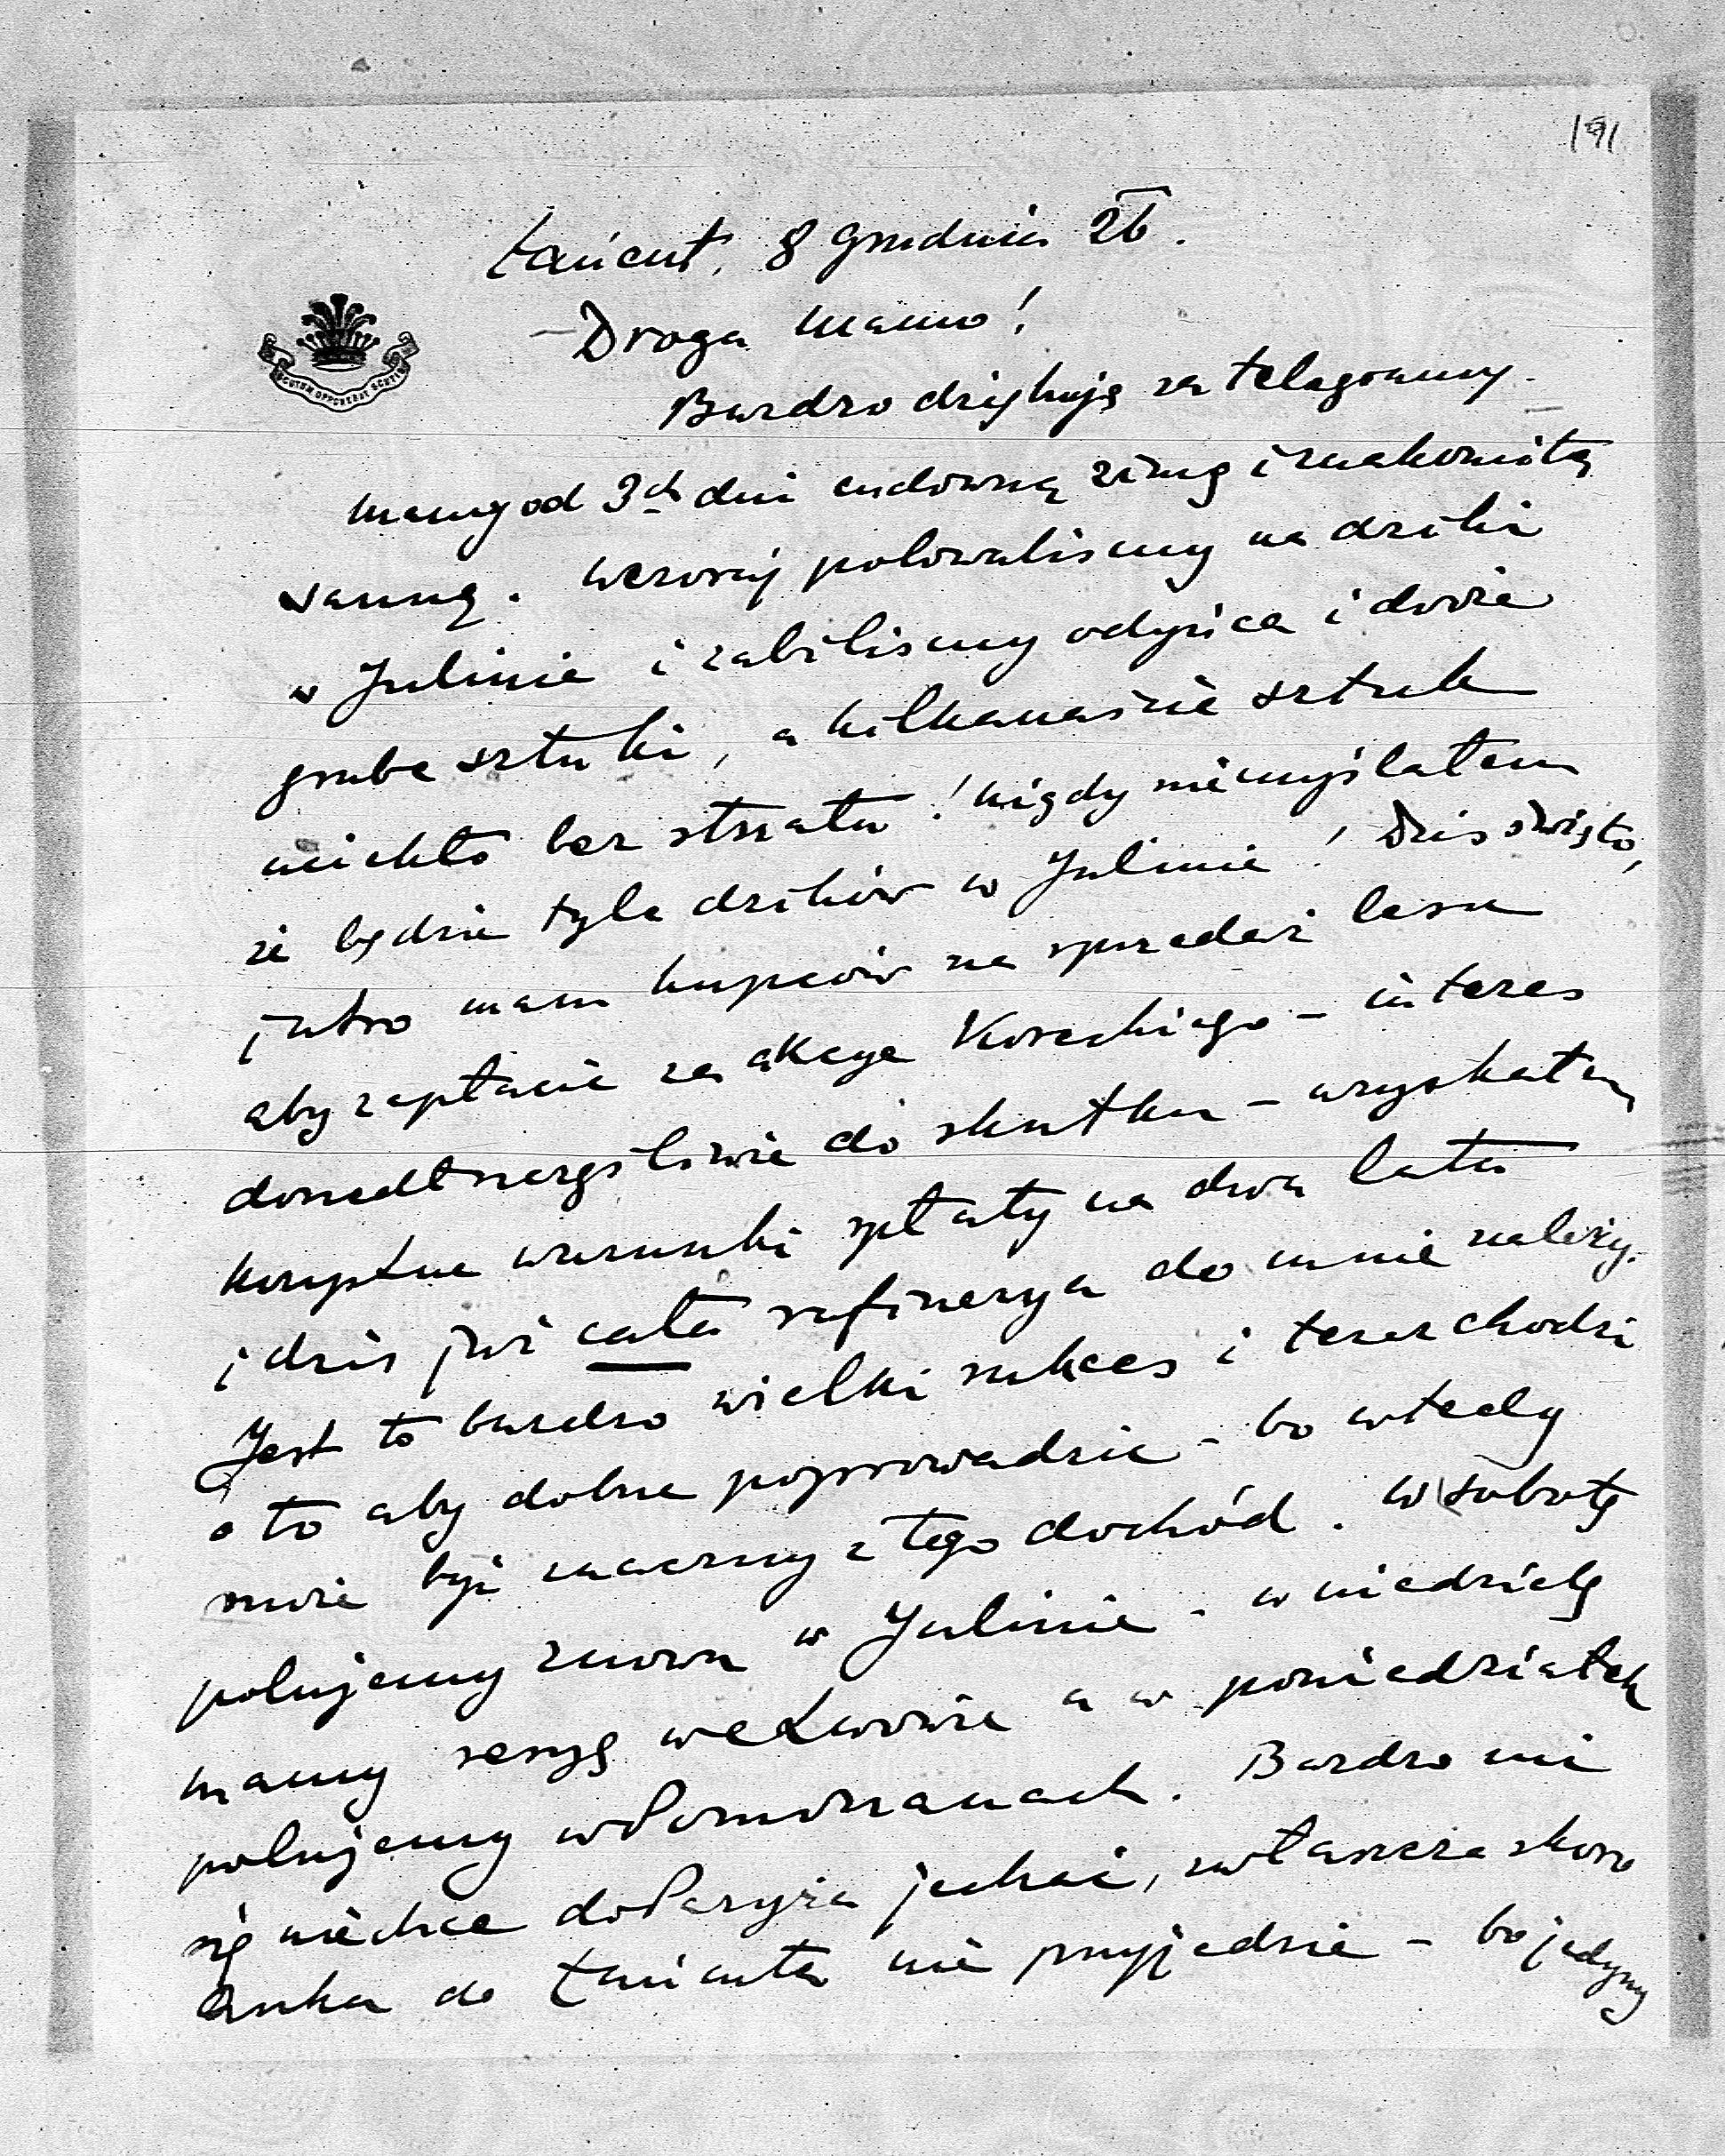 191
Łańcut, 8 grudnia 26.
SCUTUM OPPONEBAT SCUTIS
Droga Mamo!
Bardzo dziękuję za telegramy.
Mamy od 3ch dni cudowną zimę i znakomitą
sannę. Wczoraj polowaliśmy na dziki
w Julinie i zabiliśmy odyńca i dwie
grube sztuki, a kilkanaście sztuk
uciekło bez strzału! Nigdy nie myślałem
że będzie tyle dzików w Julinie! Dziś święto,
jutro mam kupców na sprzedaż lasu
aby zapłacić za akcye Koreckiego - interes
doszedł szczęśliwie do skutku - uzyskałem
korzystne warunki spłaty na dwa lata
i dziś już cała rafinerya do mnie należy.
Jest to bardzo wielki sukces i teraz chodzi
o to aby dobrze poprowadzić - bo wtedy
może być znaczny z tego dochód. W sobotę
polujemy znowu w Julinie - w niedzielę
mamy sesyę we Lwowie a w poniedziałek
polujemy w Pomorzanach. Bardzo mi
się nie chce do Paryża jechać, zwłaszcza skoro
Anka do Łańcuta nie przyjedzie - bo jedyny